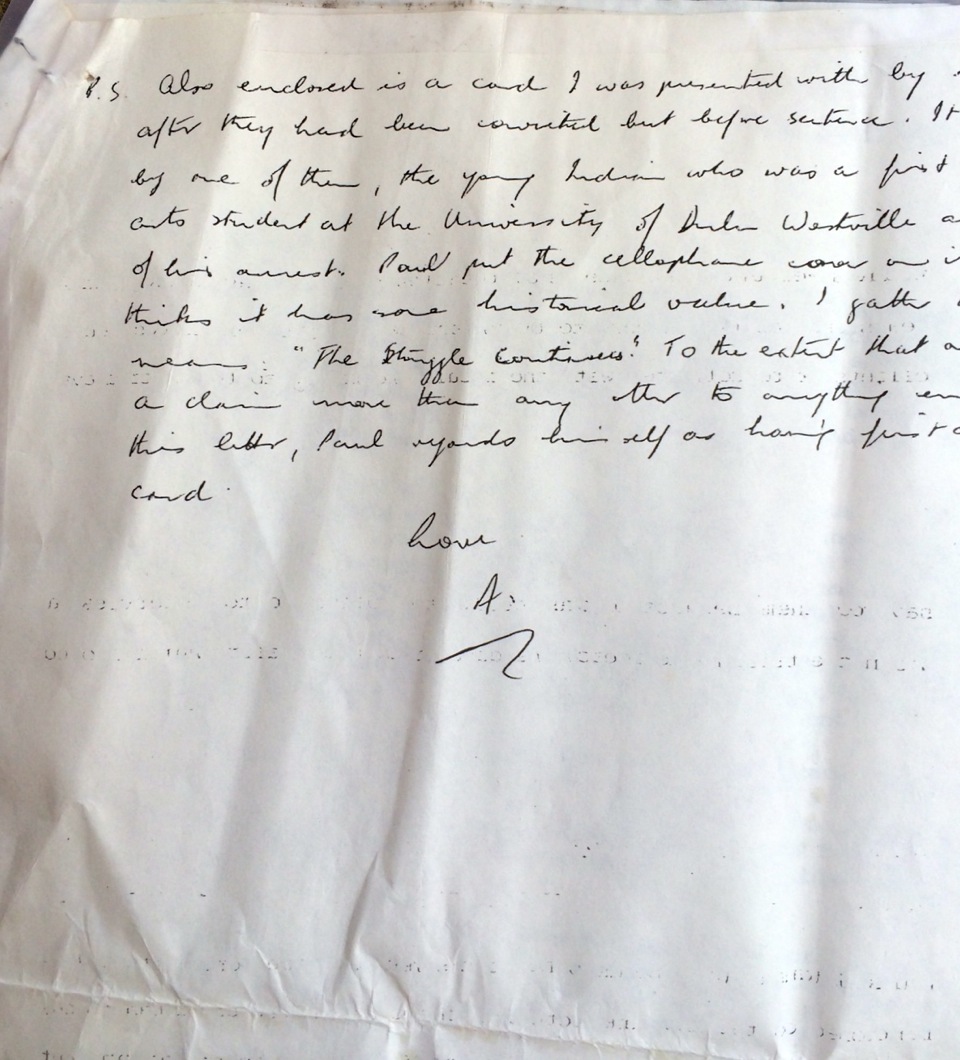 P.S. Also enclosed is a card I was presented with by
after they had been convicted but before sentence. It
by one of them, the young Indian who was a first
arts student at the University of Durban Westville a
of his arrest. Paul put the cellophane cover on i
thinks it has some historical value. I gather
means "The Struggle Continues." To the extent that
a claim more than any other to anything en
this letter, Paul regards himself as having first
card.
Love
A.